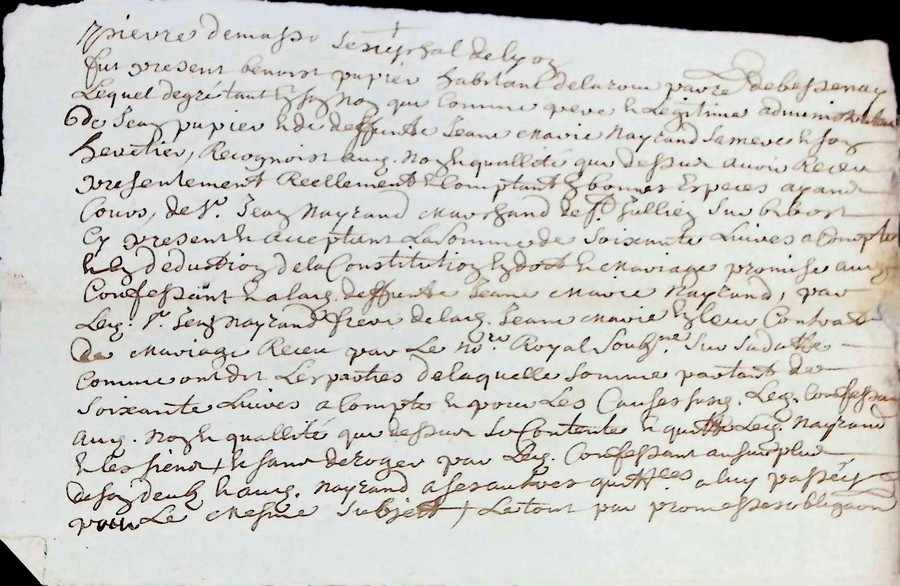 pierre demasso seneschal de lyon
fut present benoist papier habitant delarou parre de bessenay
Lequel degré tant en son nom que comme pere et Legitime administrateur
de Jean papier et de deffunte Jeane Marie Nayrand sa mere et son
heretier, Recognoist auq. nom et quallité que dessus avoir Receu
presentement Reellement et Comptant en bonnes Especes ayant
Cours, de sr. Jean Nayrand Marchand de st. Jullien sur bibost
Cy present et acceptant La somme de soixante Livres a Compte
et en deduction de la Constitution en dot et Mariage promise aud.
Confessant et a laq. deffunte Jeane Marie Nayrand, par
Leq. sr. Jean Nayrand frere de laq. Jeane Marie en leur Contrat
de Mariage Receu par Le nore. Royal Soubne. sur sa datte
Comme ont dit Les parties de laquelle somme partant de
soixante Livres a Compte et pour Les Causes susq. Leq. Confessant
auq. nom et quallité que dessus se Contante et quitte Leq. Nayrand
et les siens, et sans deroger par Leq. Confessant au surplus
de son deub et auq. Nayrand a ses autres quittces a luy passées
pour Le Mesme Subjett, Le tout par promesses obligaon